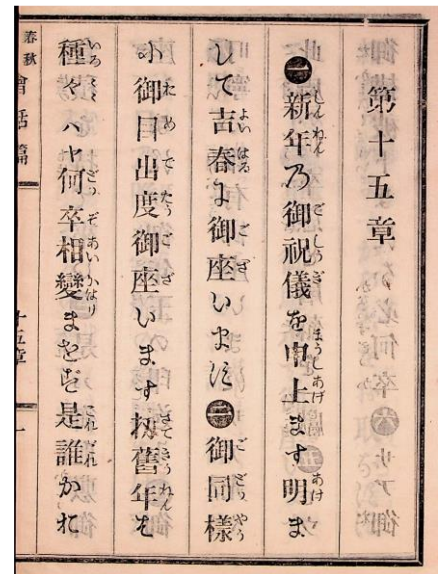 第十五章
㊀新年乃御祝儀を申上ます明ま
して吉春に御座います㊁御同樣
に御目出度御座います扨舊年も
種々ハヤ何卒相變ませず是誰かれ
春秋
會話篇
十五章
一